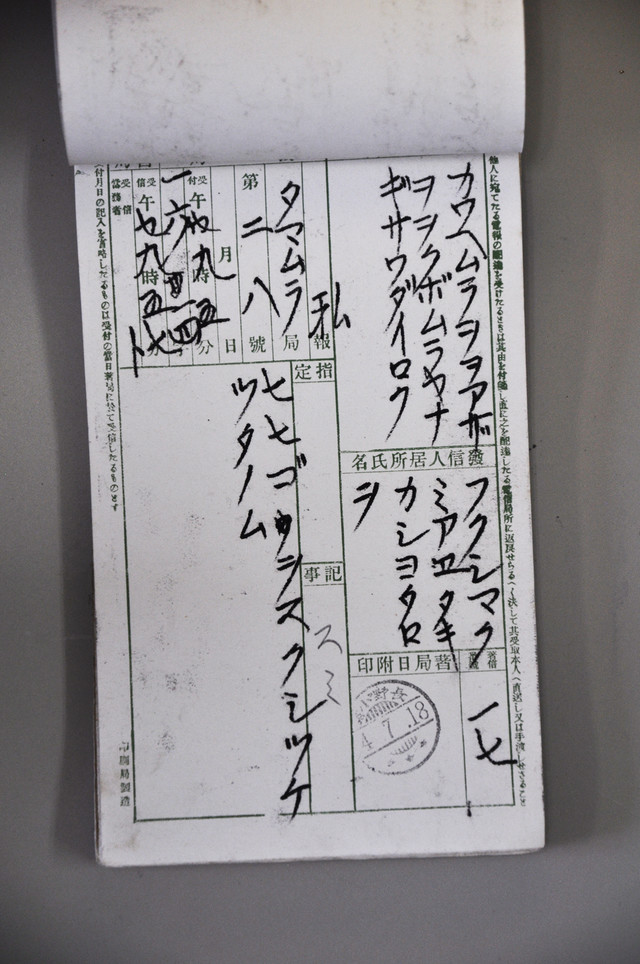 他人に宛てたる電報の配達を受けたるときは其由を付箋し直に之を配達したる電信局所に返戻せらるへく決して其受取本人へ直送し又は手渡しせさること
カウヘムラヲヲアザ
ヲヲクボムラヤナ
ギサワダイロク
發信人居所氏名
フクシマク
ミアヱタキ
カシヨタロ
ヲ
著信
一七
著局日附印
長野小
4.7.18
私報
タマムラ局
第二八號
月
日
受付
午
時
分
受信
午
時
受信
當務者
指定
七七ゴウヲスクシツケ
ツタノム
記事
スミ
受付月日の記入を省略したるものは受付の當日著局に於て受信したるものとす
印刷局製造